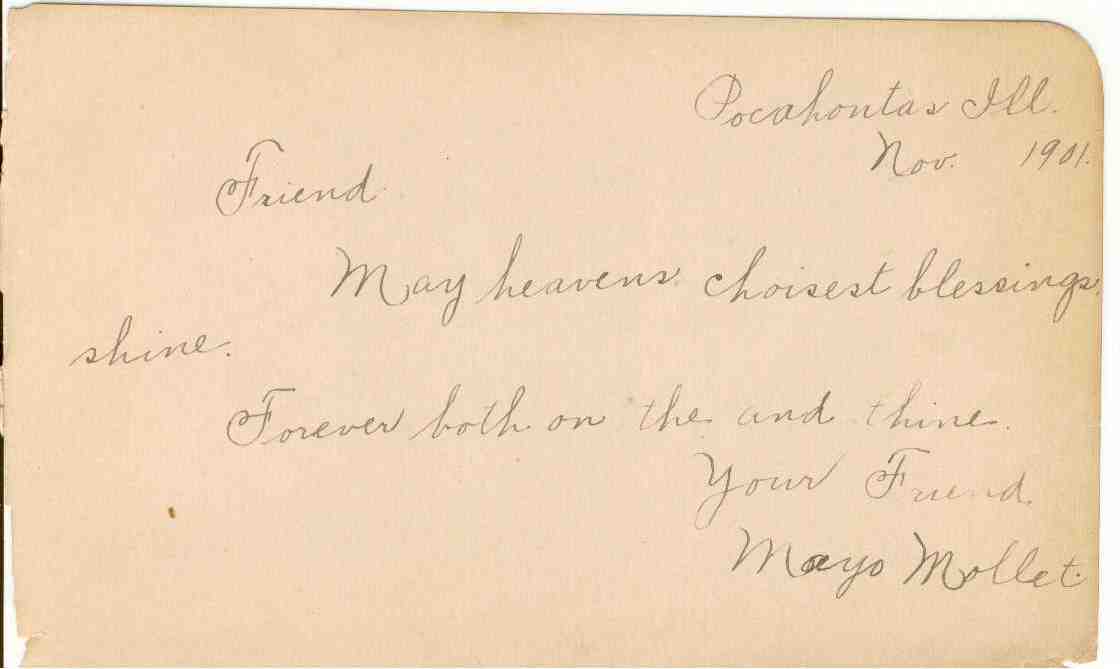 Pocahontas Ill.
Nov. 1901.
Friend
May heavens choisest blessings
shine.
Forever both on the and thine.
Your Friend
Mayo Mollet.